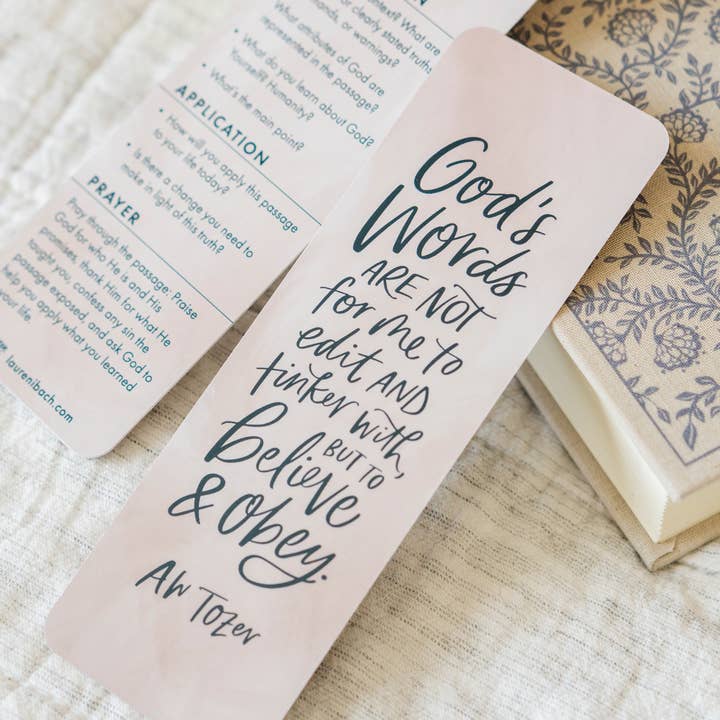 God's
Words
ARE NOT
for me to
edit AND
tinker with,
BUT TO
believe
& obey.
AW Tozer
ON
text? What are
or clearly stated truths
ands, or warnings?
• What attributes of God are
represented in the passage?
• What do you learn about God?
Yourself? Humanity?
• What's the main point?
APPLICATION
• How will you apply this passage
to your life today?
• Is there a change you need to
make in light of this truth?
PRAYER
Pray through the passage: Praise
God for who He is and His
promises, thank Him for what He
taught you, confess any sin the
passage exposed, and ask God to
help you apply what you learned
your life.
laurenibach.com